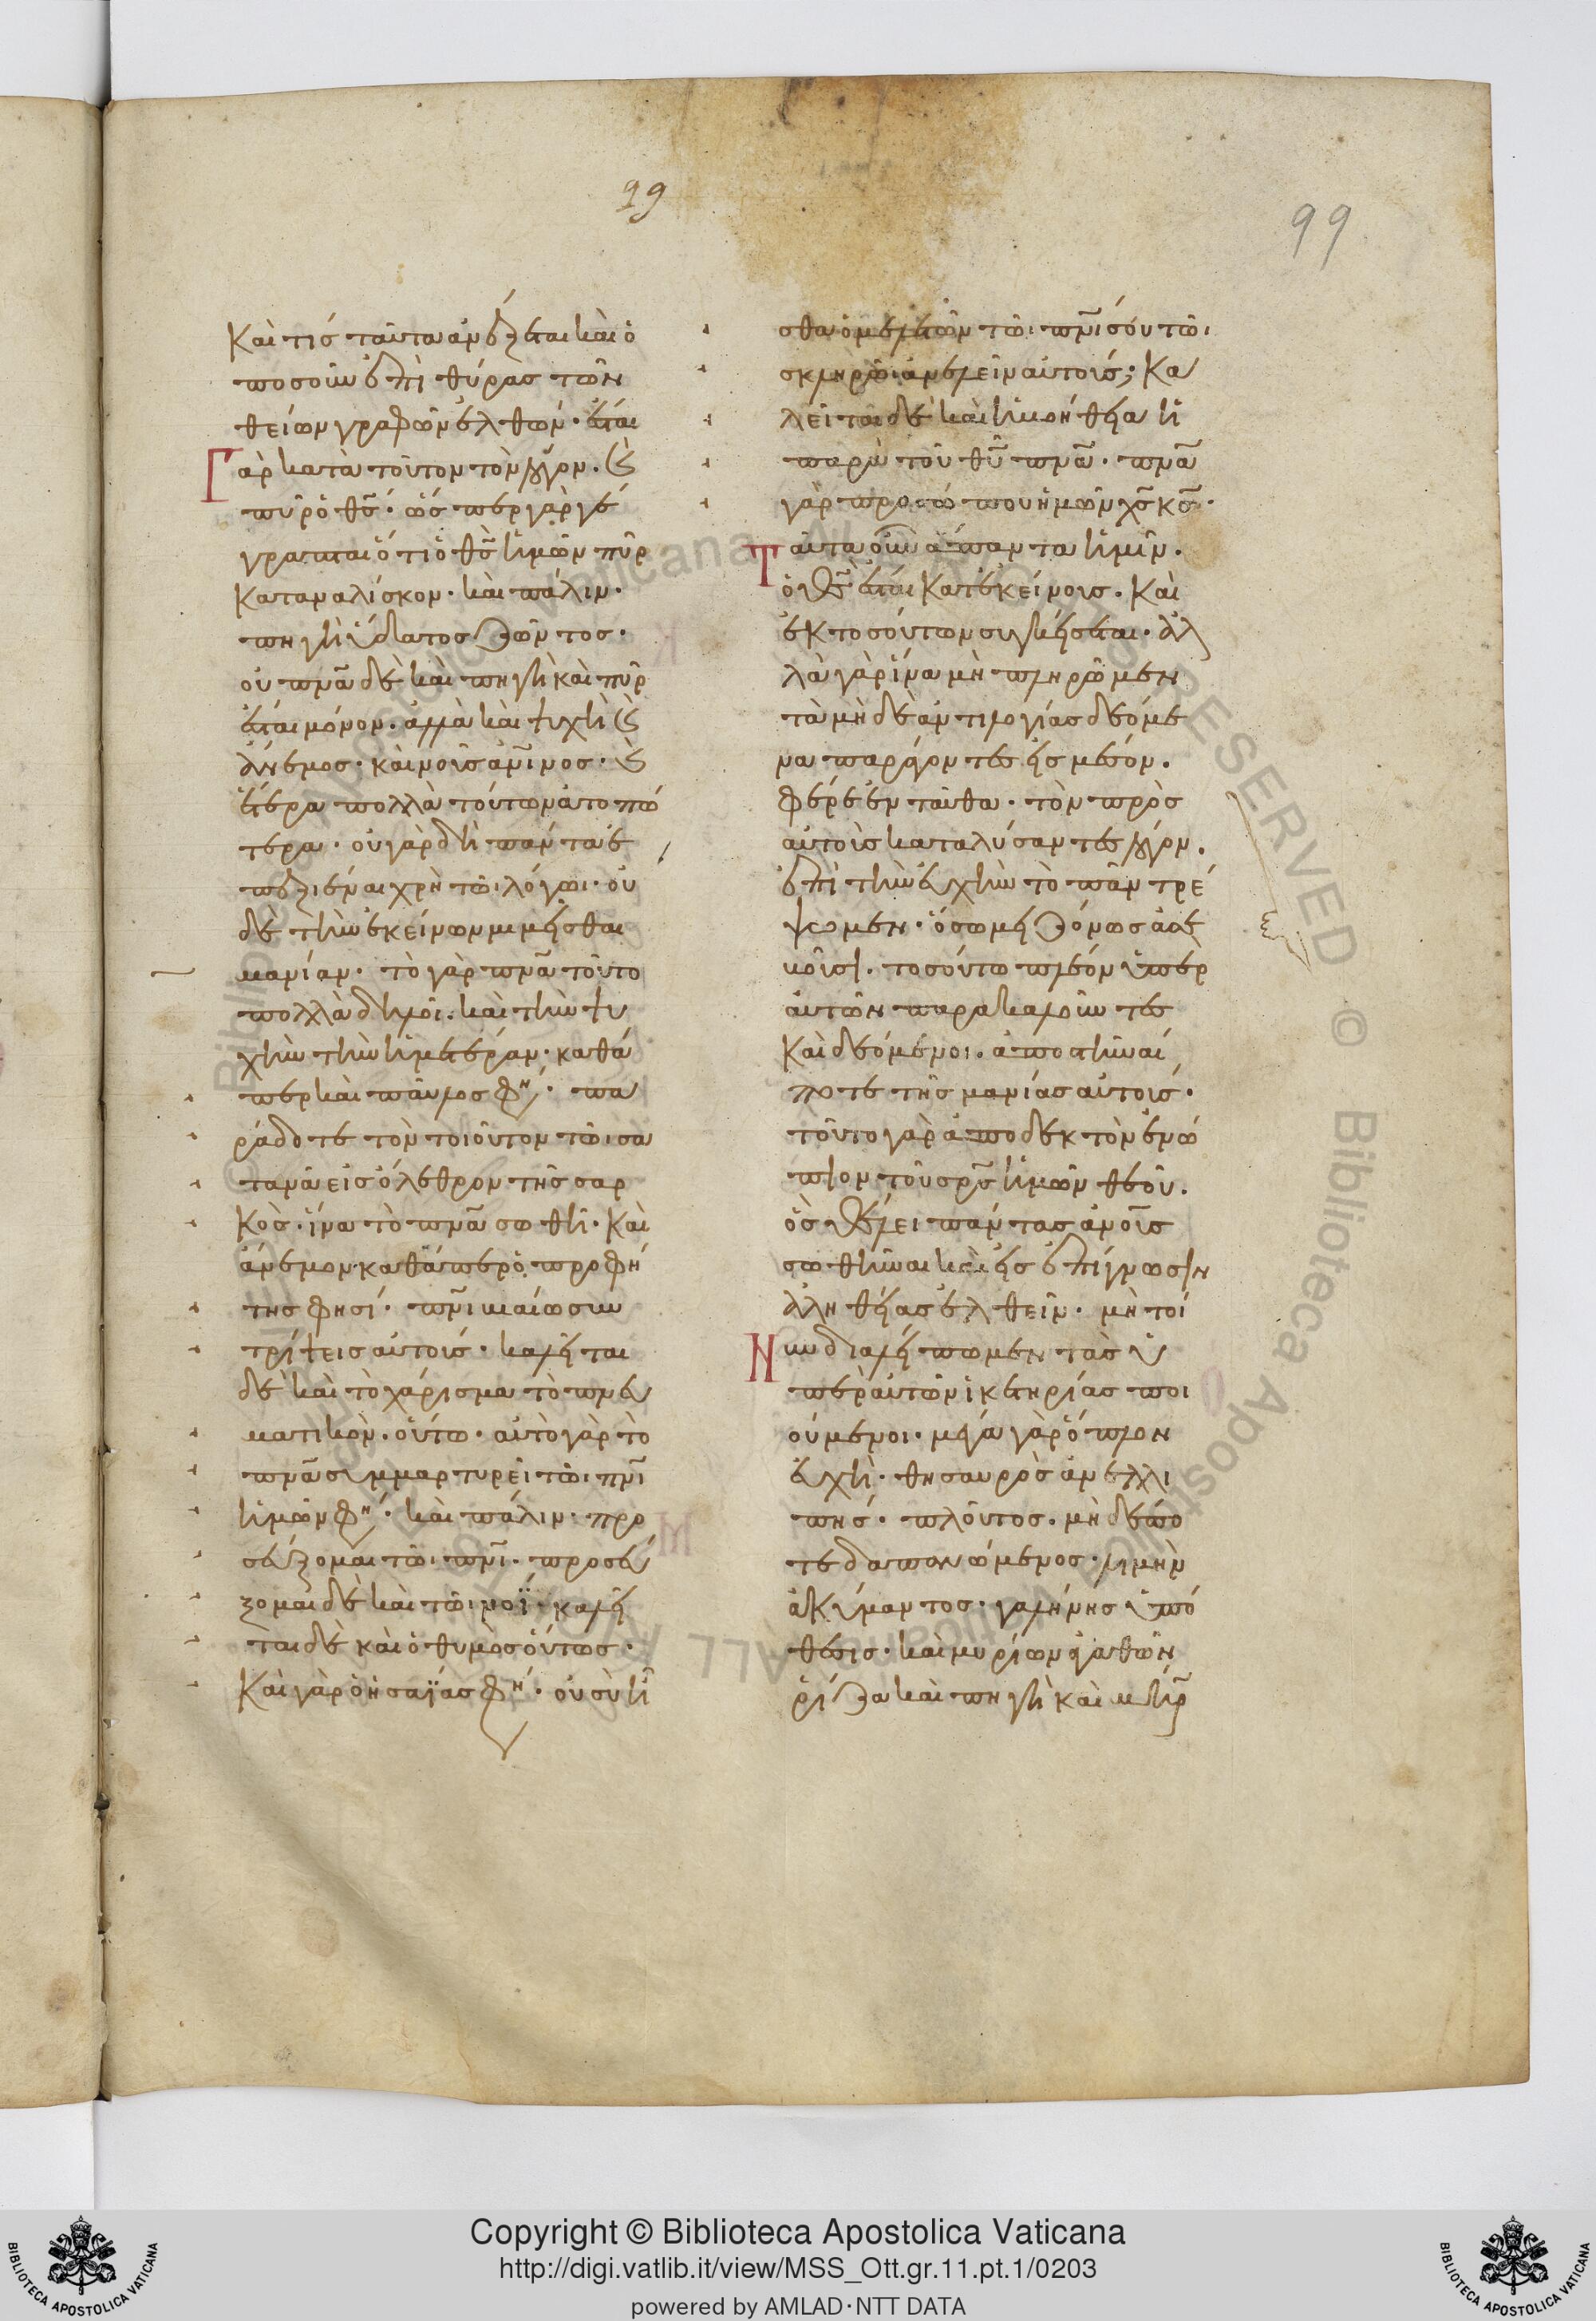 99
99
Καὶ τίς ταῦτα ἀνέξεται καὶ ὁ
ποσοῦν ἐπὶ θύρας τῶν
θείων γραφῶν ἐλθών· ἔσται
Γὰρ κατὰ τοῦτον τὸν λόγον· καὶ
πῦρ ὁ θς· ὥσπερ γὰρ γέ
γραπται ὅτι ὁ θς ἡμῶν πῦρ
καταναλίσκον· καὶ πάλιν·
πηγὴ ὕδατος ζῶντος·
οὐ πνα δὲ καὶ πηγὴ καὶ πῦρ
ἔσται μόνον· ἀλλὰ καὶ ψυχὴ καὶ
ἄνεμος· καὶ νοῦς ἀνινος· καὶ
ἕτερα πολλὰ τούτων ἀτοπώ
τερα· οὐ γὰρ δὴ πάντα ἐ
πεξιέναι χρὴ τῶι λόγωι· οὐ
δὲ τὴν ἐκείνων μιμεῖσθαι
μανίαν· τὸ γὰρ πνα τοῦτο
πολλὰ δηλοῖ· καὶ τὴν ψυ
χὴν τὴν ἡμετέραν· καθά
περ καὶ παῦλος φη· πα
ράδοτε τὸν τοιοῦτον τῶι σα
τανᾶ εἰς ὄλεθρον τῆς σαρ
κὸς· ἵνα τὸ πνα σωθῆ· καὶ
ἄνεμον· καθάπερ ὁ προφή
της φησί· πνι βιαίω συν
τρίψεις αὐτοις· καλεῖται
δὲ καὶ τὸ χάρισμα τὸ πνευ
ματικὸν· οὕτω· αὐτὸ γὰρ τὸ
πνα συμμαρτυρεῖ τῶι πνι
ἡμῶν φη· καὶ πάλιν· προ
σεύξομαι τῶι πνι· προσεύ
ξομαι δὲ καὶ τῶι νοΐ· καλεῖ
ται δὲ καὶ ὁ θυμὸς οὕτως·
Καὶ γὰρ ὁ ἡσαΐας φη· οὐ σὺ ἦ
σθα ὁ μελετῶν τῶι πνι σου τῶι
σκληρῶι ἀνελεῖν αὐτοις; Κα
λεῖται δὲ καὶ ἡ βοήθεια ἡ
παρὰ τοῦ θυ πνα· πνα
γὰρ προσώπου ἡμῶν χς κς·
Ταῦτα οὖν ἅπαντα ἡμῖν·
ὁ θς ἔσται κατ ἐκείνοις· Καὶ
ἐκ τοσούτων συγκείσεται· ἀλ
λὰ γὰρ ἵνα μὴ πληρῶμεν
τὰ μὴ δὲ ἀντιλογίας δεόμε
να παράγοντες εἰς μέσον·
φέρε ἐνταῦθα· τὸν πρὸς
αὐτοὺς καταλύσαντες λόγον·
ἐπὶ τὴν εὐχὴν τὸ πᾶν τρέ
ψωμεν· ὅσω μειζόνως ἀσε
βοῦσι· τοσούτω πλέον ὑπὲρ
αὐτῶν παρακαλοῦντες
Καὶ δεόμενοι· ἀποστῆναί
ποτε τῆς μανίας αὐτοις·
τοῦτο γὰρ ἀποδεκτὸν ἐνώ
πιον τοῦ σρς ἡμῶν θεοῦ·
ὃς θέλει πάντας ανους
σωθῆναι καὶ εἰς ἐπίγνωσιν
ἀληθείας ἐλθεῖν· μὴ τοί
Νυν διαλείπωμεν τὰς ὑ
πὲρ αὐτῶν ἱκετηρίας ποι
ούμενοι· μέγα γὰρ ὅπλον
εὐχὴ· θησαυρὸς ἀνελλι
πής· πλοῦτος· μὴ δέπο
τε δαπανώμενος· λιμὴν
ἀκύμαντος· γαλήνης ὑπό
θεσις· καὶ μυρίων ἀγαθῶν
ῥίζα καὶ πηγὴ καὶ μηρ
Copyright © Biblioteca Apostolica Vaticana
http://digi.vatlib.it/view/MSS_Ott.gr.11.pt.1/0203
powered by AMLAD·NTT DATA
BIBLIOTECA APOSTOLICA VATICANA
BIBLIOTECA APOSTOLICA VATICANA